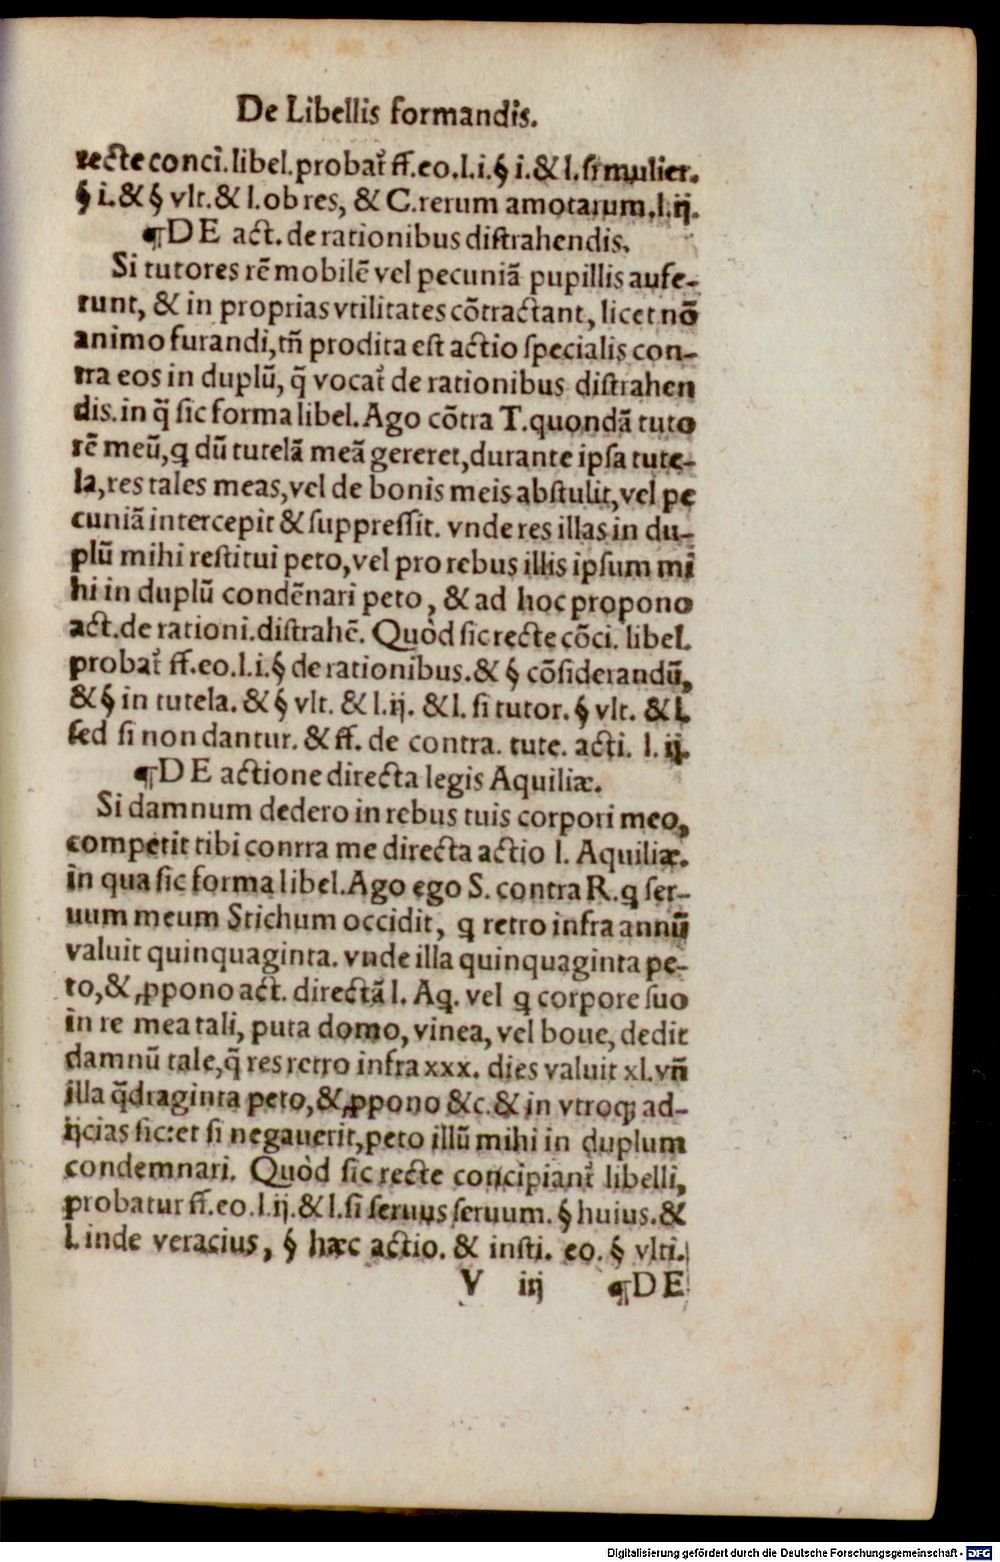 De Libellis formandis.
recte conci. libel. probat᷑ ff. eo. l. i. § i. & l. si mulier.
§ i. & § vlt. & l. ob res, & C. rerum amotarum. l. ij.
¶DE act. de rationibus distrahendis.
Si tutores rē mobilē vel pecuniā pupillis aufe-
runt, & in proprias vtilitates cōtractant, licet nō
animo furandi, tñ prodita est actio specialis con-
tra eos in duplū, q̄ vocat᷑ de rationibus distrahen
dis. in q̈ sic forma libel. Ago cōtra T. quondā tuto
rē meū, ꝗ dū tutelā meā gereret, durante ipsa tute-
la, res tales meas, vel de bonis meis abstulit, vel pe
cuniā intercepit & suppressit. vnde res illas in du-
plū mihi restitui peto, vel pro rebus illis ipsum mi
hi in duplū condēnari peto, & ad hoc propono
act. de rationi. distrahē. Quòd sic recte cōci. libel.
probat᷑ ff. eo. l. i. § de rationibus. & § cōsiderandū,
& § in tutela. & § vlt. & l. ij. & l. si tutor. § vlt. & l.
sed si non dantur. & ff. de contra. tute. acti. l. ij.
¶DE actione directa legis Aquiliæ.
Si damnum dedero in rebus tuis corpori meo,
competit tibi contra me directa actio l. Aquiliæ.
in qua sic forma libel. Ago ego S. contra R. ꝗ ser-
uum meum Stichum occidit, ꝗ retro infra annū
valuit quinquaginta. vnde illa quinquaginta pe-
to, & ꝓpono act. directā l. Aq. vel ꝗ corpore suo
in re mea tali, puta domo, vinea, vel boue, dedit
damnū tale, q̄ res retro infra xxx. dies valuit xl. vñ
illa q̈draginta peto, & ꝓpono &c. & in vtroq; ad-
ijcias sic: et si negauerit, peto illū mihi in duplum
condemnari. Quòd sic recte concipiant᷑ libelli,
probatur ff. eo. l. ij. & l. si seruus seruum. § huius. &
l. inde veracius, § hæc actio. & insti. eo. § vlti.
V iij ¶DE
Digitalisierung gefördert durch die Deutsche Forschungsgemeinschaft - DFG